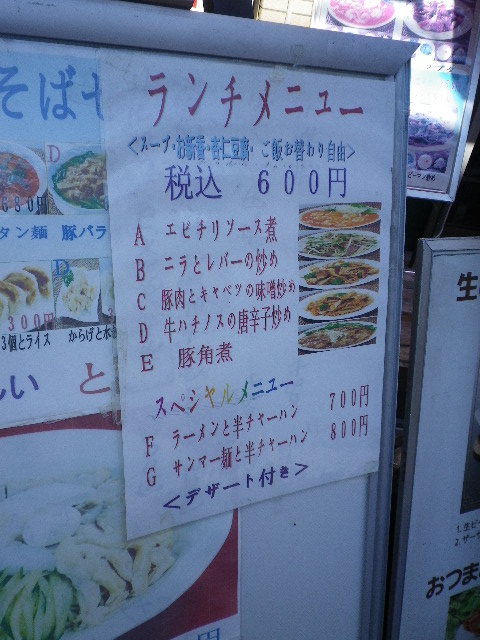 ランチメニュー
<スープ・お新香・杏仁豆腐・ご飯お替わり自由>
税込 600円
A エビチリソース煮
B ニラとレバーの炒め
C 豚肉とキャベツの味噌炒め
D 牛ハチノスの唐辛子炒め
E 豚角煮
スペシャルメニュー
F ラーメンと半チャーハン 700円
G サンマー麺と半チャーハン 800円
<デザート付き>
そばセ
D
680円
タン麺 豚バラ
D
300円
3個とライス からげと水
しい と
円
ピーマン
生
1.生ビ
2.サー
おつま